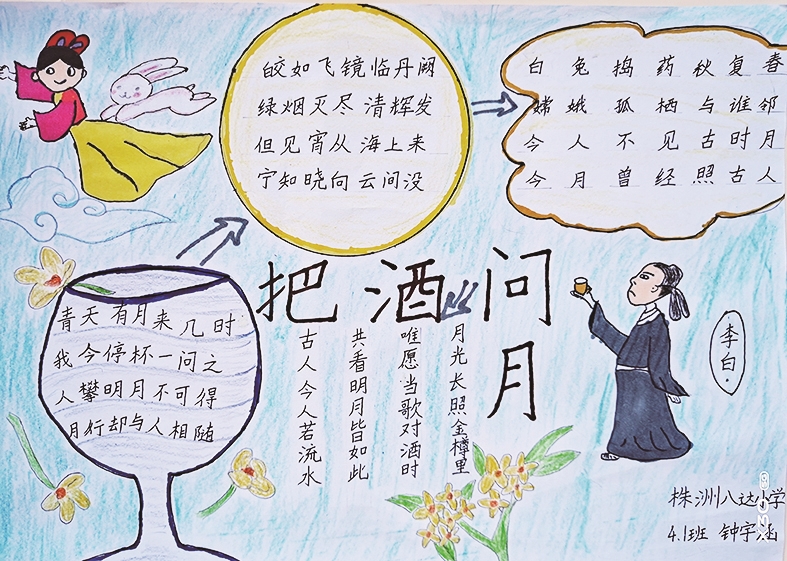 把酒问月
李白
青天有月来几时
我今停杯一问之
人攀明月不可得
月行却与人相随
皎如飞镜临丹阙
绿烟灭尽清辉发
但见宵从海上来
宁知晓向云间没
白兔捣药秋复春
嫦娥孤栖与谁邻
今人不见古时月
今月曾经照古人
古人今人若流水
共看明月皆如此
唯愿当歌对酒时
月光长照金樽里
株洲八达小学
4.1班 钟宇涵